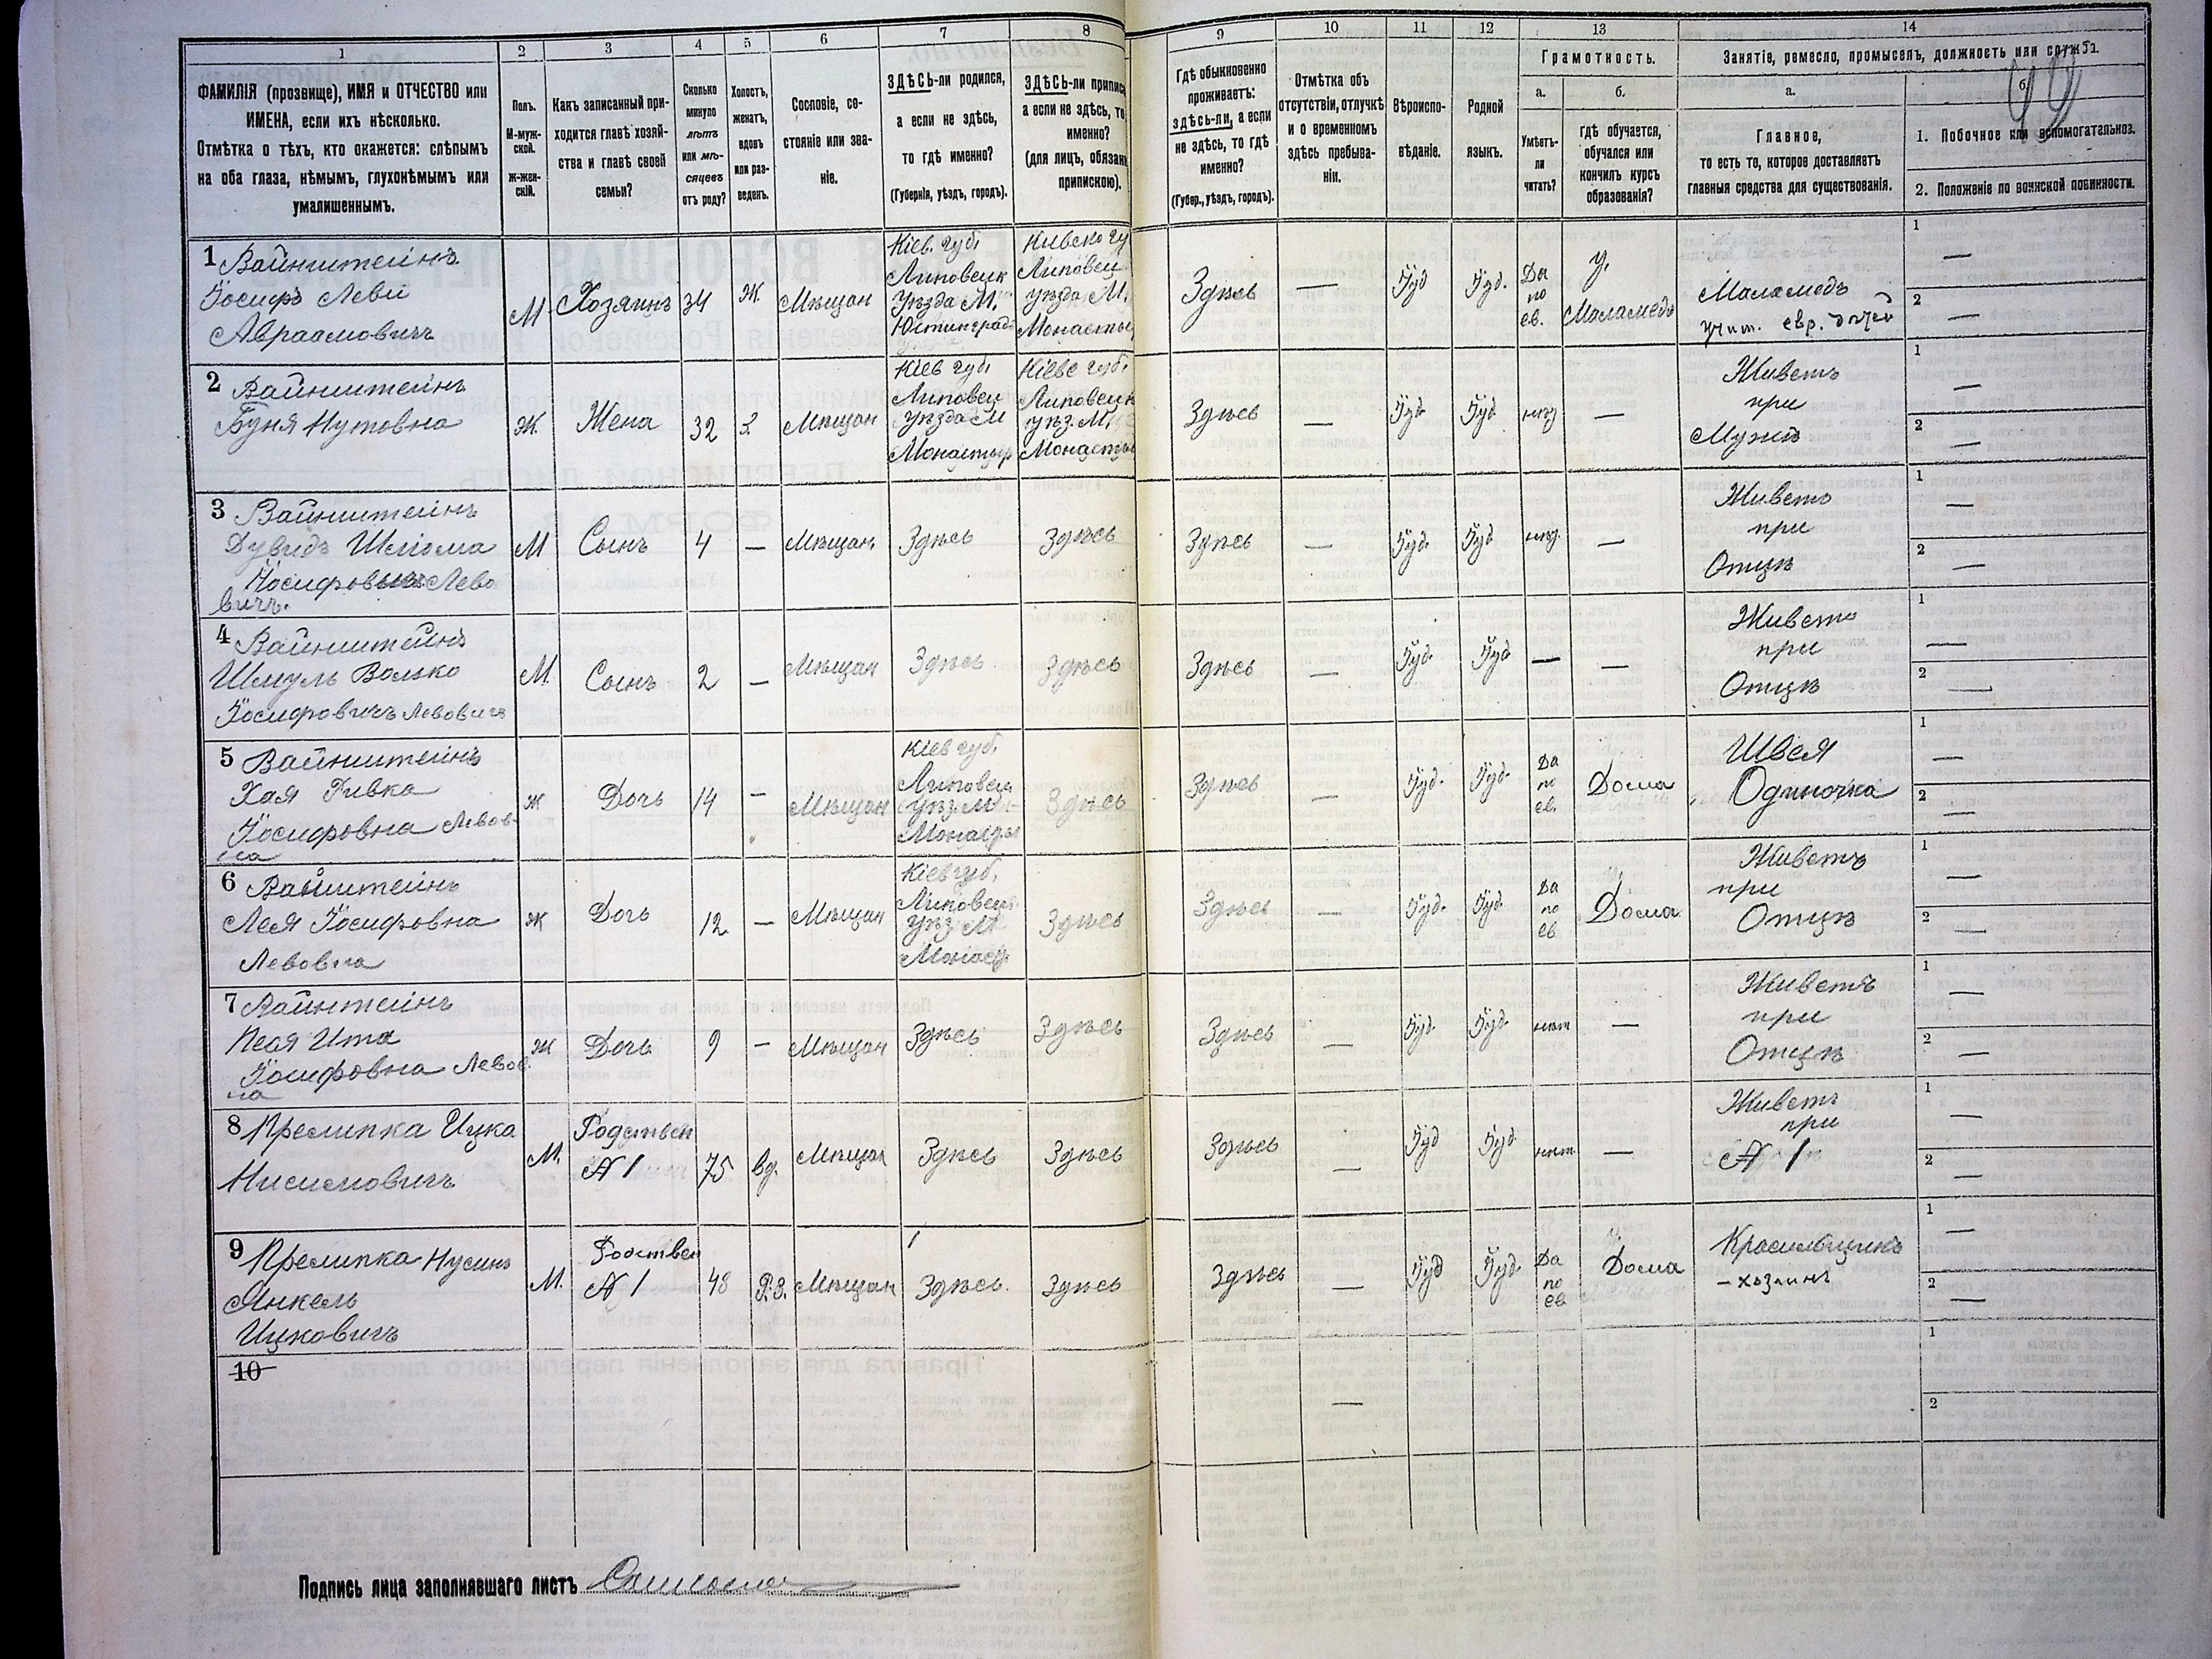 1 2 3 4 5 6 7 8 9 10 11 12 13 14
ФАМИЛІЯ (прозвище), ИМЯ и ОТЧЕСТВО или
ИМЕНА, если ихъ нѣсколько.
Отмѣтка о тѣхъ, кто окажется: слѣпымъ
на оба глаза, нѣмымъ, глухонѣмымъ или
умалишеннымъ.
Полъ.
М-муж-
ской.
ж-жен-
скій.
Какъ записанный при-
ходится главѣ хозяй-
ства и главѣ своей
семьи?
Сколько
минуло
лѣтъ
или мѣ-
сяцевъ
отъ роду?
Холостъ,
женатъ,
вдовъ
или раз-
веденъ.
Сословіе, со-
стояніе или зва-
ніе.
ЗДѢСЬ-ли родился,
а если не здѣсь,
то гдѣ именно?
(Губернія, уѣздъ, городъ).
ЗДѢСЬ-ли приписа
а если не здѣсь, то
именно?
(для лицъ, обязан
припискою).
Гдѣ обыкновенно
проживаетъ:
здѣсь-ли, а если
не здѣсь, то гдѣ
именно?
(Губер., уѣздъ, городъ).
Отмѣтка объ
отсутствіи, отлучкѣ
и о временномъ
здѣсь пребыва-
ніи.
Вѣроиспо-
вѣданіе.
Родной
языкъ.
Грамотность.
а.
Умѣетъ-
ли
читать?
б.
гдѣ обучается,
обучался или
кончилъ курсъ
образованія?
Занятіе, ремесло, промыселъ, должность или служба.
а.
Главное,
то есть то, которое доставляетъ
главныя средства для существованія.
б.
1. Побочное или вспомогательное.
2. Положеніе по воинской повинности.
1 Вайнштейнъ
Іосифъ Леви
Авраамовичъ
М
Хозяинъ
34
Ж.
Мѣщан
Кіев. губ.
Липовецк
уѣзда М.
Юстинград
Кивско гу
Липовец
уѣзда М.
Монасты
Здѣсь
—
Іуд
Іуд.
Да
по
ев.
у.
Маламеда
Маламедъ
учит. евр. дѣтей
1 —
2 —
2 Вайнштейнъ
Буня Нутовна
Ж.
Жена
32
З.
Мѣщан
Кіев губ.
Липовец
уѣзда М
Монастыр
Кіевс губ.
Липовецк
уѣз. М.
Монасты
Здѣсь
—
Іуд.
Іуд
нѣт
—
Живетъ
при
Мужѣ
1 —
2 —
3 Вайнштейнъ
Дувидъ Шліома
Іосифовичъ Лево
вичъ.
М
Сынъ
4
—
Мѣщан
Здѣсь
Здѣсь
Здѣсь
—
Іуд.
Іуд
нѣт.
—
Живетъ
при
Отцѣ
1 —
2 —
4 Вайнштейнъ
Шмуль Волько
Іосифовичъ Левовичъ
М.
Сынъ
2
—
Мѣщан
Здѣсь
Здѣсь
Здѣсь
—
Іуд.
Іуд
—
—
Живетъ
при
Отцѣ
1 —
2 —
5 Вайнштейнъ
Хая Ривка
Іосифовна Левов-
на
Ж
Дочь
14
—
Мѣщан
Кіев губ.
Липовец
уѣз. М
Монасты
Здѣсь
Здѣсь
—
Іуд.
Іуд.
Да
по
ев.
Дома
Швея
Одиночка
1 —
2 —
6 Вайнштейнъ
Лея Іосифовна
Левовна
Ж
Дочь
12
—
Мѣщан
Кіев губ.
Липовец
уѣз М
Монаст
Здѣсь
Здѣсь
—
Іуд.
Іуд.
Да
по
ев
Дома
Живетъ
при
Отцѣ
1 —
2 —
7 Вайнштейнъ
Песя Ита
Іосифовна Левов
на
Ж
Дочь
9
—
Мѣщан
Здѣсь
Здѣсь
Здѣсь
—
Іуд.
Іуд.
нѣт
—
Живетъ
при
Отцѣ
1 —
2 —
8 Прелипка Ицка
Нисиновичъ
М.
Родствен
№ 1
75
вд.
Мѣщан
Здѣсь
Здѣсь
Здѣсь
—
Іуд
Іуд.
нѣт
—
Живетъ
при
№ 1
1 —
2 —
9 Прелипка Нусинъ
Янкель
Ицковичъ
М.
Родствен
№ 1
48
Р.З.
Мѣщан
Здѣсь.
Здѣсь
Здѣсь
—
Іуд
Іуд.
Да
по
ев
Дома
Красильщикъ
- хозяинъ
1 —
2 —
10
—
1
2
Подпись лица заполнявшаго листъ